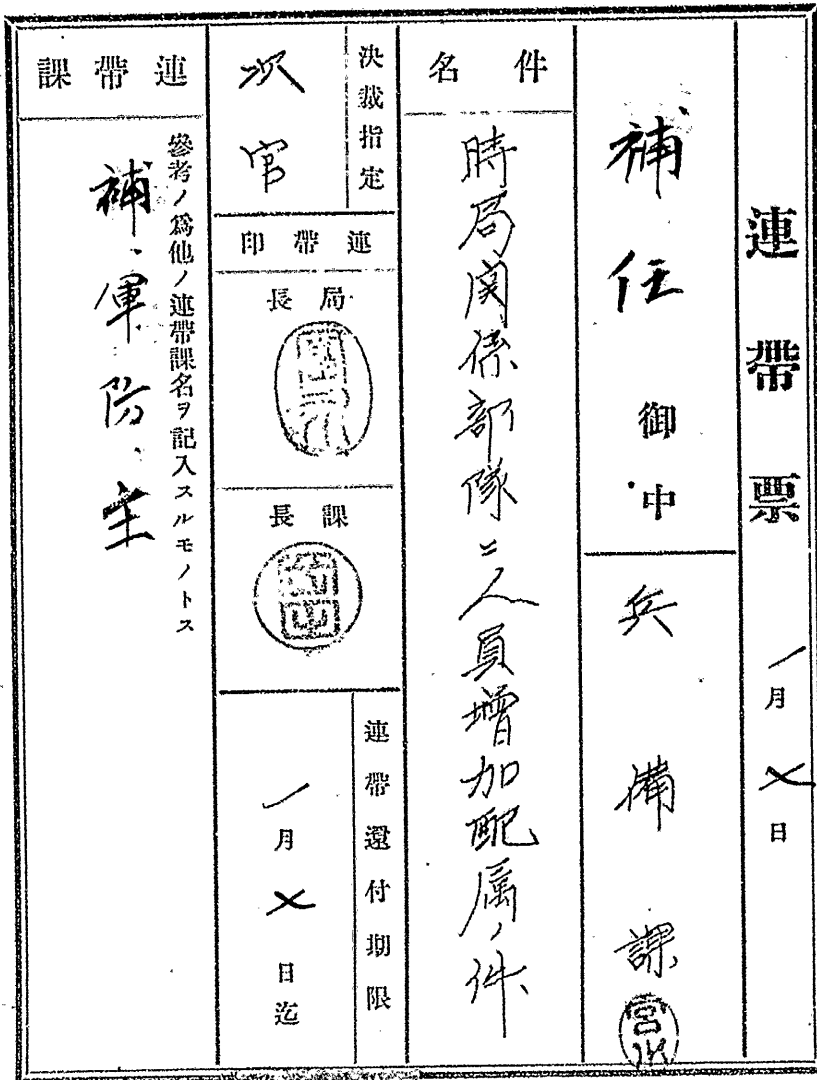 連帶票
一月七日
補任御中
兵備課
宮
件名
時局関係部隊ニ人員增加配属ノ件
決裁指定
次官
連帶印
局長
課長
連帶還付期限
一月七日迄
連帶課
參考ノ爲他ノ連帶課名ヲ記入スルモノトス
補、軍、防、主